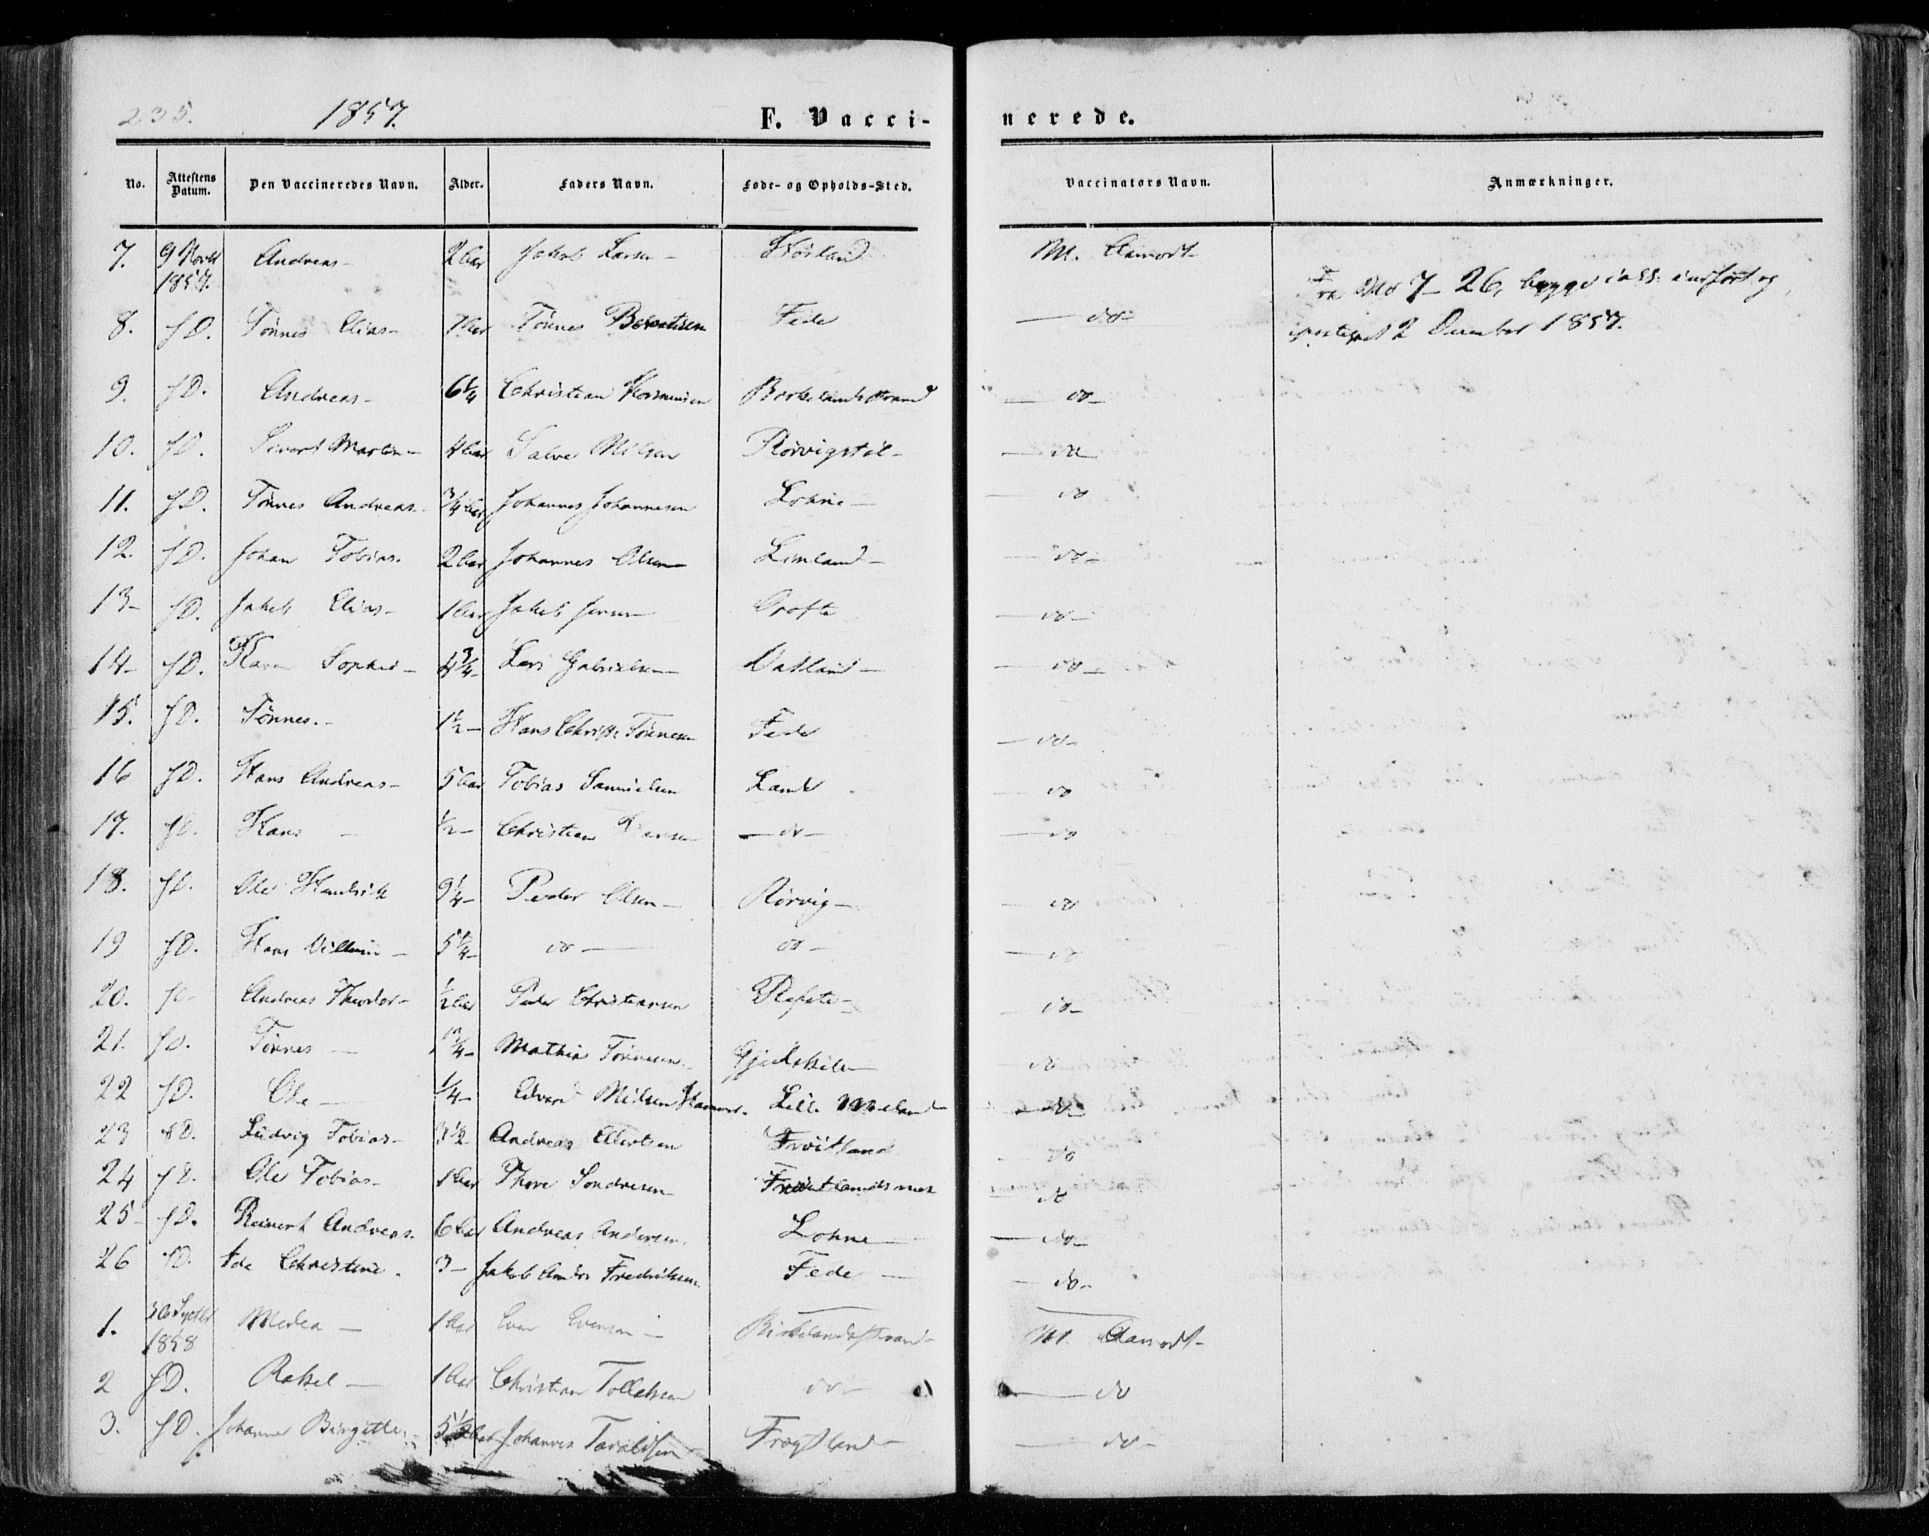 235. 1857. F. Vacci-nerede.
No. Attestens Datum. Den Vaccineredes Navn. Alder. Faders Navn. Føde- og Opholds-Sted. Vaccinators Navn. Anmærkninger.
7. 9 Novbr 1857. Andreas 2 Aar Jakob Larsen M. Aamodt
Fra No 7-26, begge incl. indført og
2 December 1857.
8. sD. Tønnes Elias Tønnes Berntsen Fede do
9. sD. Andreas 6¼ Christian Rasmusen Birkelandsstrand do
10. sD. Sivert Martin 4 Aar Salve Nilsen Rørvigstøl do
11. sD. Tønnes Andreas ¾ Aar Johannes Johannesen Lohne do
12. sD. Johan Tobias 2 Aar Johannes Olsen Limland do
13 sD. Jakob Elias 1 Aar Jakob Jensen do
14 sD. Karen Sophie 4¾ Lars Gabrielsen Oatland do
15. sD. Tønnes. 1½ Hans Christ. Tønnesen Fede do
16 sD. Hans Andreas 5 Aar Tobias Samuelsen Lande do
17. sD. Hans ½ Christian Hansen do do
18. sD. Ole Hendrik 9¼ Peder Olsen Rørvig do
19 sD. Hans Villum 5¼ do do do
20. sD. Andreas Theodor ½ Aar Peder Christiansen Rafste do
21. sD. Tønnes Mathias Tønnesen do
22 sD. Ole ¼ Edvard Nilsen Lille Meland do
23 sD. Ludvig Tobias 3½ Andreas Ellertsen Frøitland do
24 sD. Ole Tobias 1 Aar Thore Sondresen do
25 sD. Reinert Andreas. 6 Aar Andreas Andersen Lohne do
26 sD. Ide Christine. 3 Jakob Andr. Fredriksen Fede do
1. 1858 Medea 1 Aar Even Evensen Birkelandsstrand M. Aamodt
2 sD. Rakel 1 Aar Christian Tollaksen do do
3. sD. Johanne Birgitte 5½ Aar Johannes Taraldsen Frøytland do